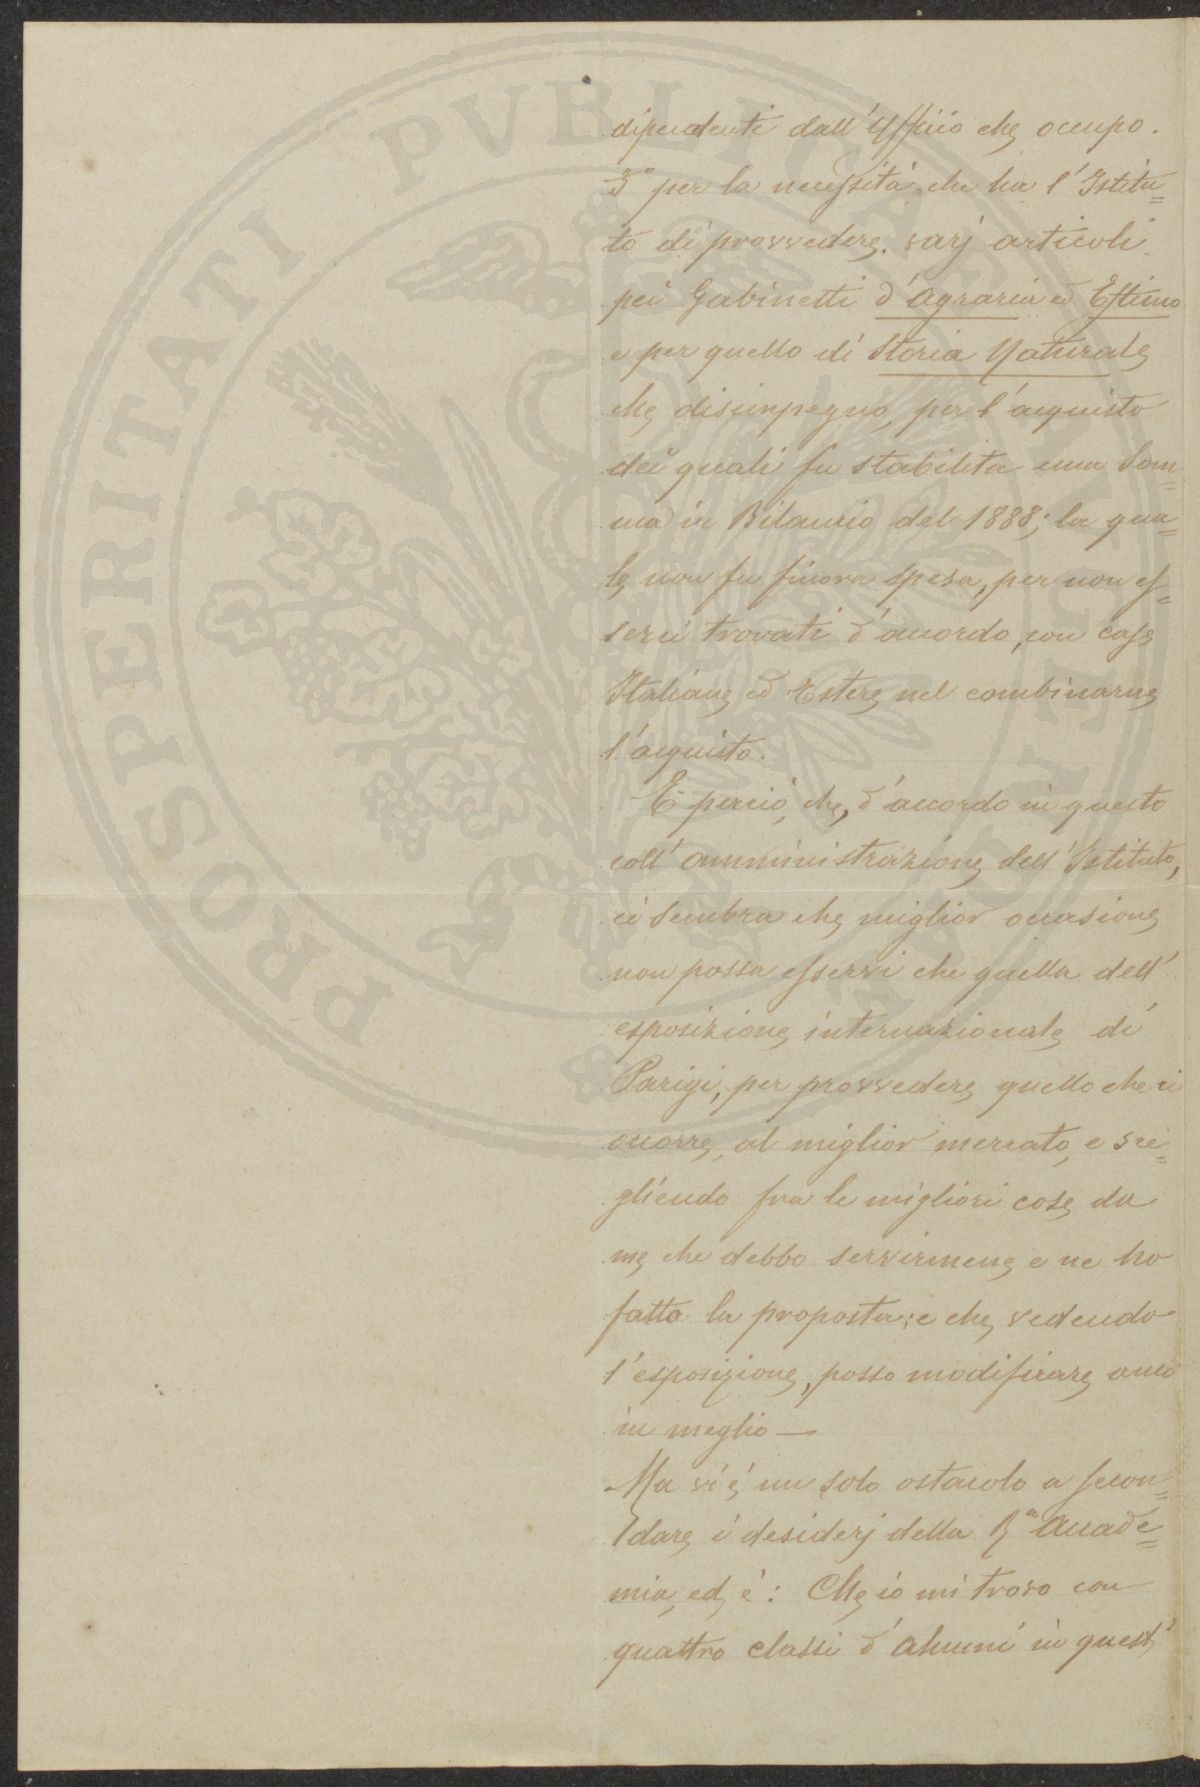 dipendenti dall'Uffiio che occupo.
3° per la necessità che ha l'Istitu=
to di provvedere varj articoli
pei Gabinetti d'Agraria ed Estimo
e per quello di Storia Naturale
che disimpegno, per l'acquisto
dei quali fu stabilita una Som=
ma in Bilancio del 1888; la qua=
le non fu finora spesa, per non es=
serci trovati d'accordo, con case
Italiane ed Estere nel combinarne
l'acquisto.
E perciò, che, d'accordo in questo
coll' amministrazione dell'Istituto,
ci sembra che miglior occasione
non possa esservi che quella dell'
esposizione internazionale di
Parigi, per provvedere quello che ci
occorre, al miglior mercato, e sce=
gliendo fra le migliori cose da
me che debbo servirmene e ne ho
fatto la proposta; e che, vedendo
l'esposizione, posso modificare anco
in meglio —
Ma vi è un solo ostacolo a secon=
dare i desiderj della R.a Accade=
mia, ed è: Che io mi trovo con
quattro classi d'alunni in quest'